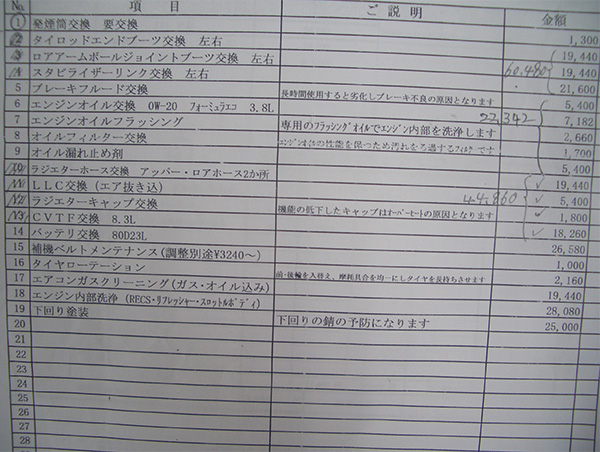 No. 項目 ご説明 金額
1 発煙筒交換 要交換 1,300
2 タイロッドエンドブーツ交換 左右 19,440
3 ロアアームボールジョイントブーツ交換 左右 60,480 19,440
4 スタビライザーリンク交換 左右 21,600
5 ブレーキフルード交換 長時間使用すると劣化しブレーキ不良の原因となります 5,400
6 エンジンオイル交換 0W-20 フォーミュラエコ 3.8L 22,342 7,182
7 エンジンオイルフラッシング 専用のフラッシングオイルでエンジン内部を洗浄します 2,660
8 オイルフィルター交換 エンジンオイルの性能を保つため汚れをろ過するフィルタです 1,700
9 オイル漏れ止め剤 5,400
10 ラジエターホース交換 アッパー・ロアホース2か所 19,440
11 LLC交換 (エア抜き込) 44,860 5,400
12 ラジエターキャップ交換 機能の低下したキャップはオーバーヒートの原因となります 1,800
13 CVTF交換 8.3L 18,260
14 バッテリ交換 80D23L 26,580
15 補機ベルトメンテナンス(調整別途¥3240〜) 1,000
16 タイヤローテーション 前・後輪を入替え、摩耗具合を均一にしタイヤを長持ちさせます 2,160
17 エアコンガスクリーニング(ガス・オイル込み) 19,440
18 エンジン内部洗浄 (RECS・リフレッシャー・スロットルボディ) 28,080
19 下回り塗装 下回りの錆の予防になります 25,000
20
21
22
23
24
25
26
27
28